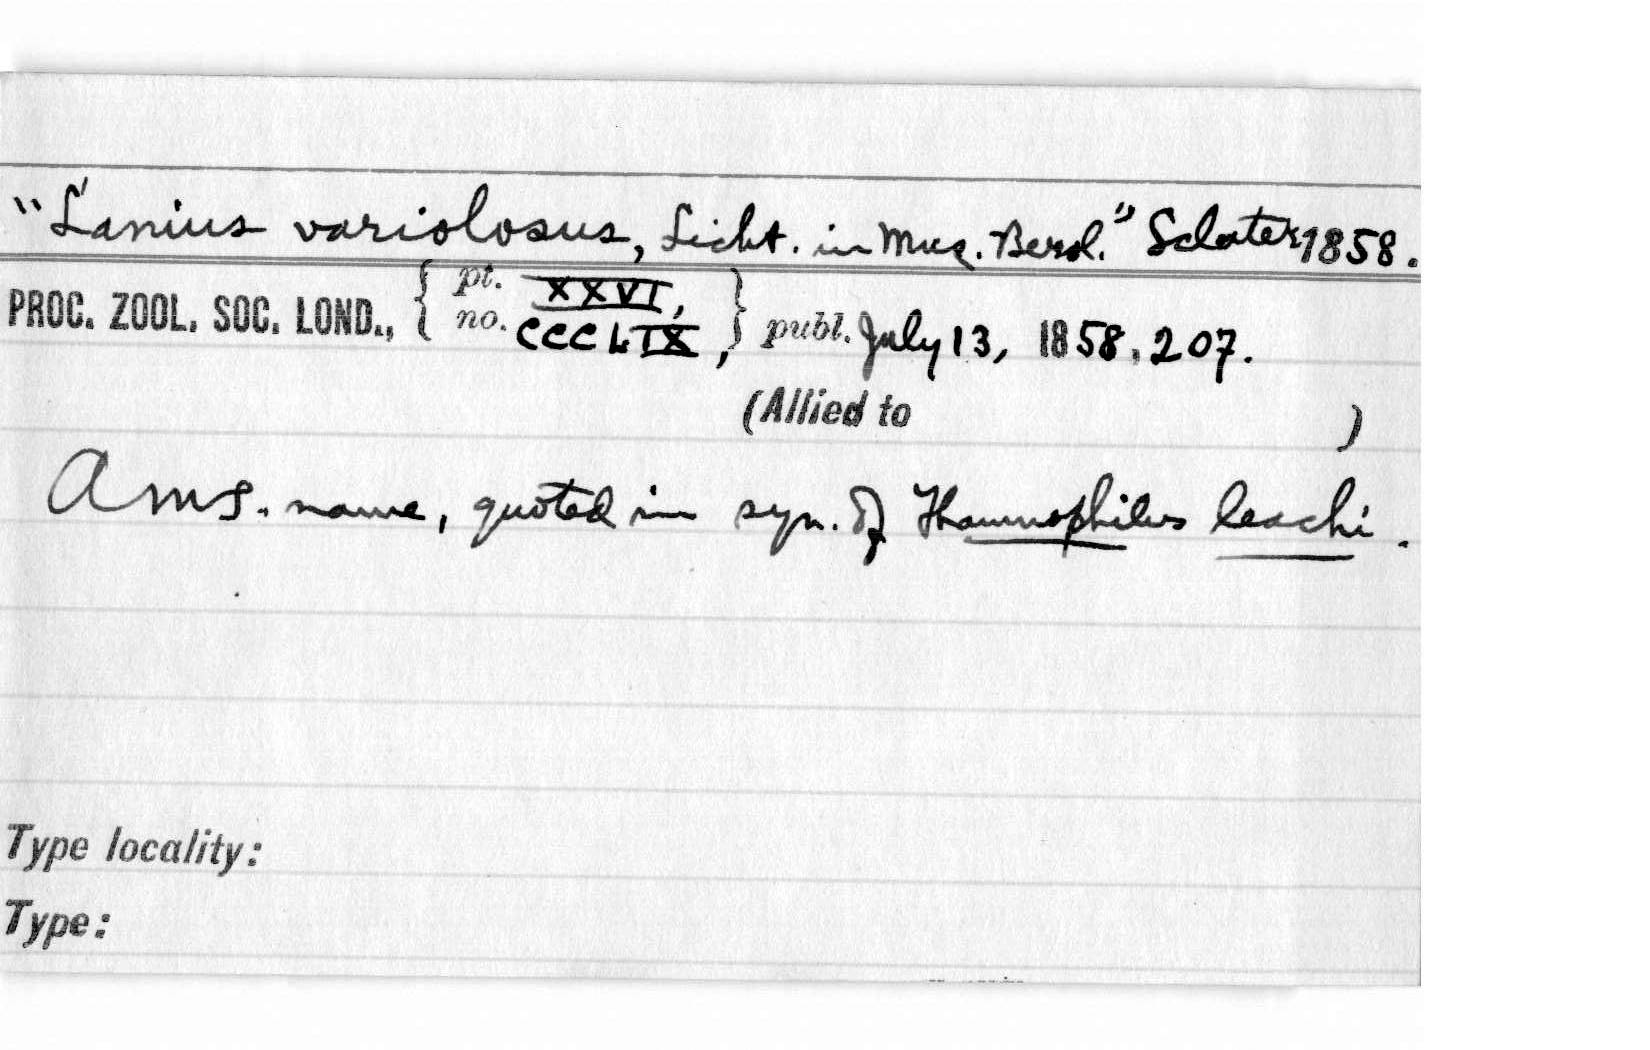 "Lanius variolosus, Licht. in Mus. Berol." Sclater 1858.
PROC. ZOOL. SOC. LOND., { pt. XXVI,
no. CCCLIX, } publ. July 13, 1858, 207.
(Allied to )
A ms. name, quoted in syn. of Thamnophilus leachi.
Type locality:
Type: